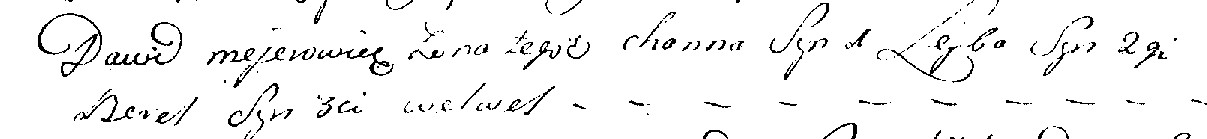 Dawid mejerowicz Żona tegoż channa Syn 1 Leyba Syn 2gi
Berel Syn 3ci welwel - - - - - - - - - -